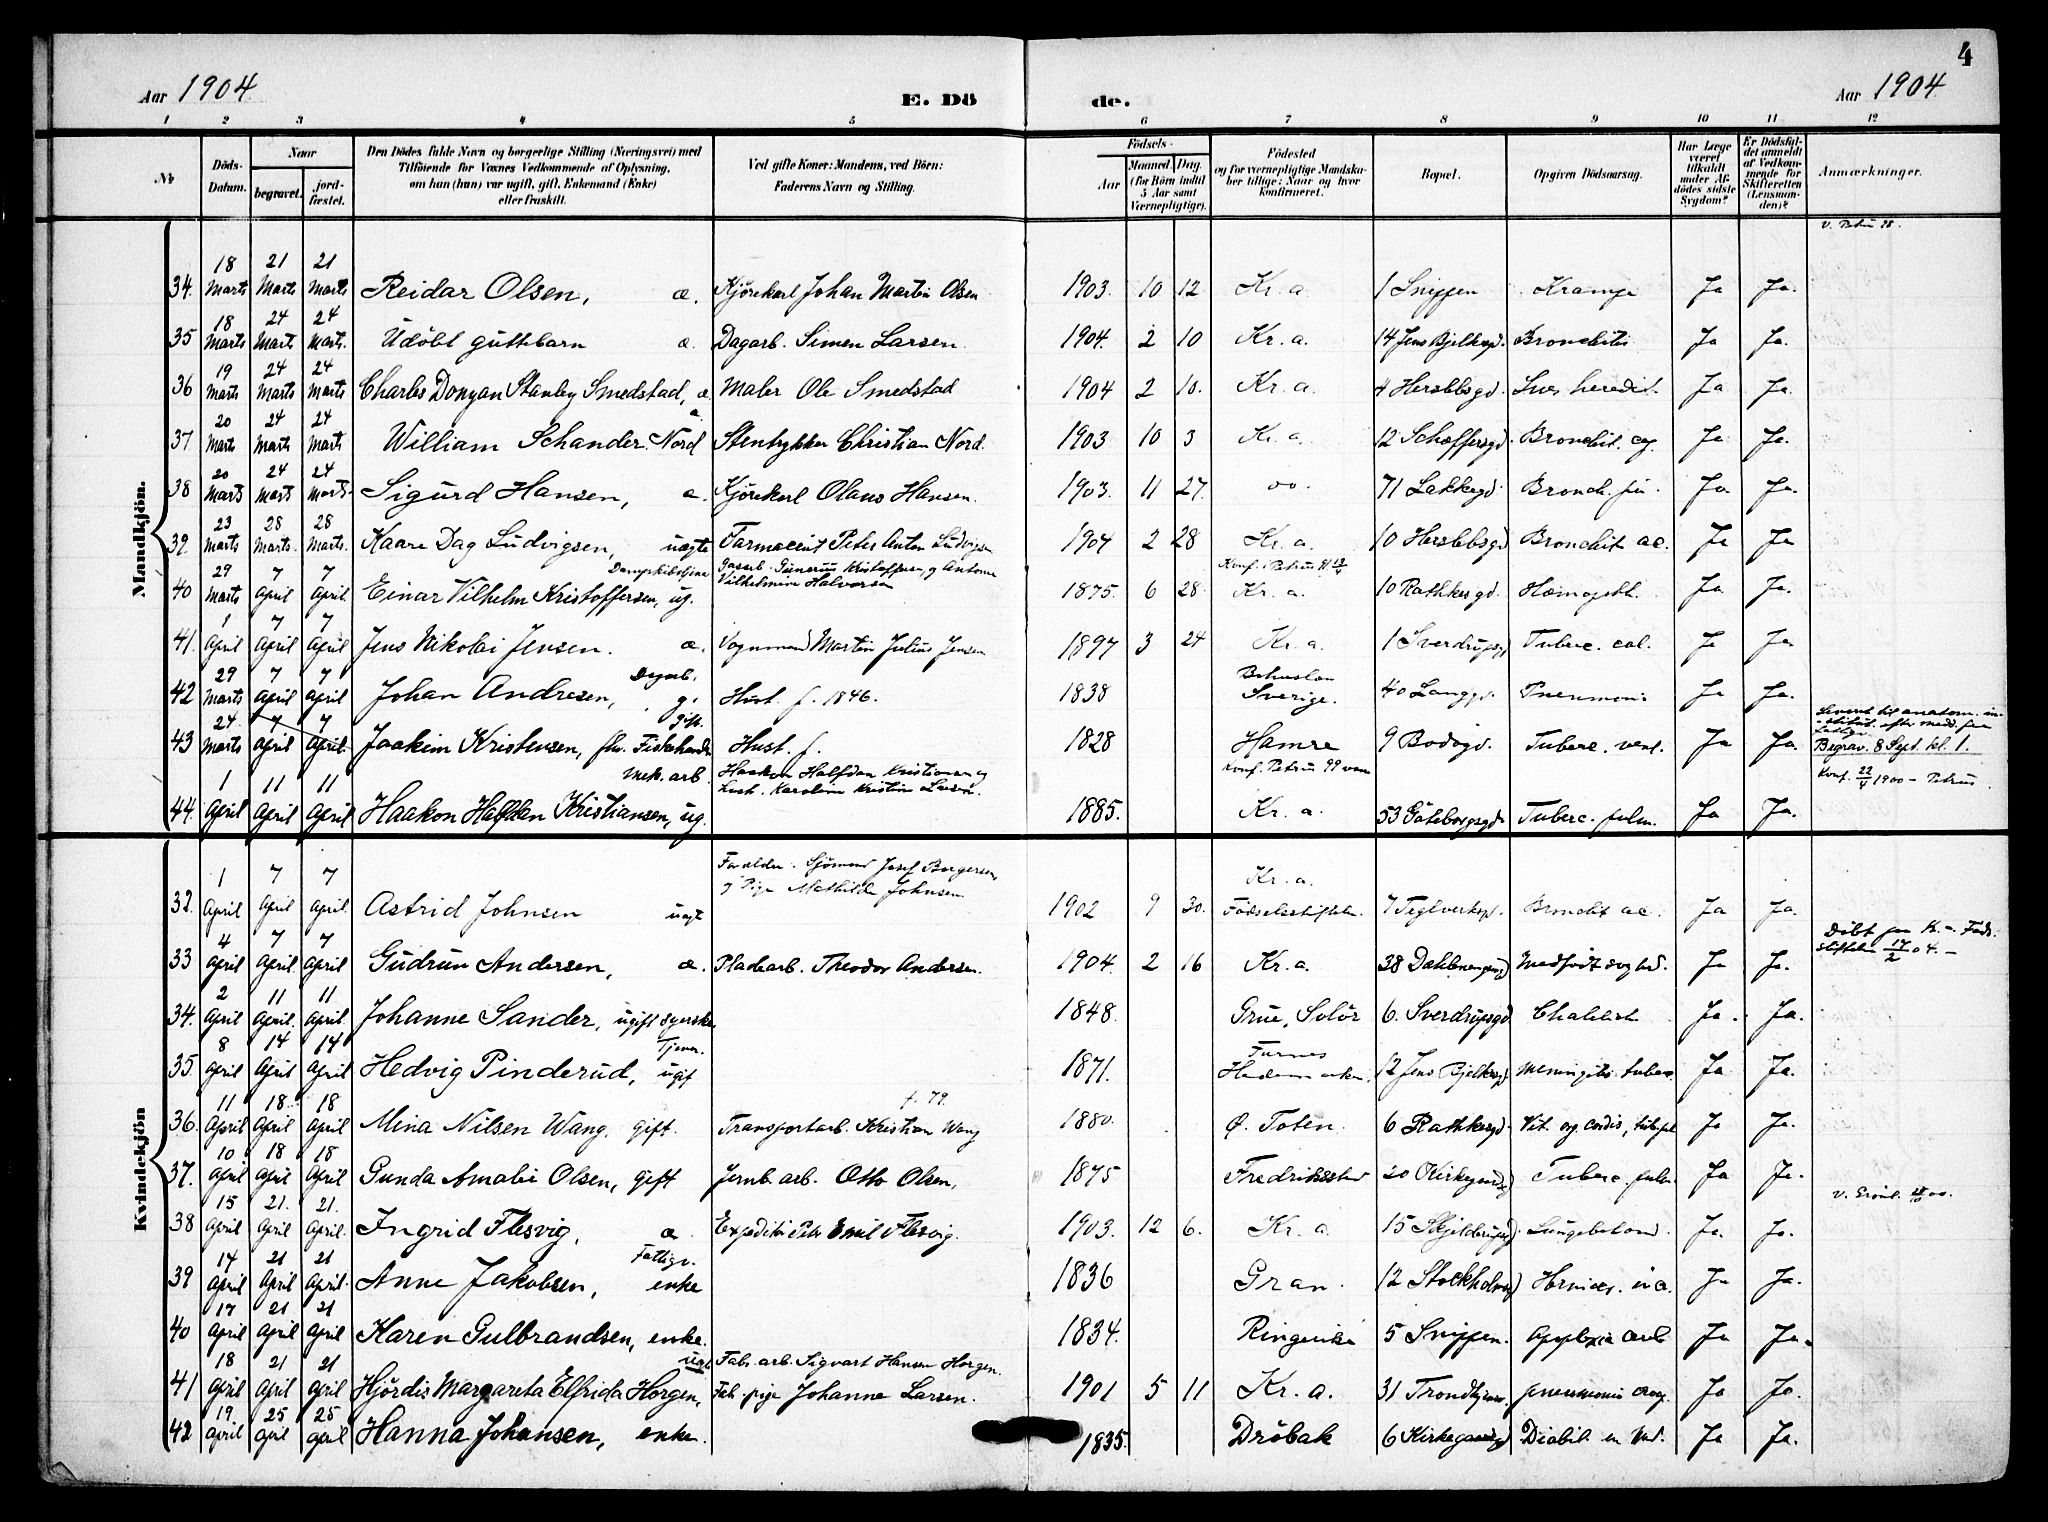 4
Aar 1904
E. Dö
de.
Aar 1904
1 2 3 4 5 6 7 8 9 10 11 12
No
Döds-Datum.
Naar
begravet.
jord-fæstet.
Den Dödes fulde Navn og borgerlige Stilling (Næringsvei) med
Tilföiende for Voxnes Vedkommende af Oplysning,
om han (hun) var ugift, gift, Enkemand (Enke)
eller fraskilt.
Ved gifte Koner: Mandens, ved Börn:
Faderens Navn og Stilling.
Födsels-
Aar
Maaned. Dag.
(for Börn indtil
5 Aar samt
Værnepligtige).
Födested
og for værnepligtige Mandska-
ber tillige: Naar og hvor
konfirmeret.
Bopæl.
Opgiven Dödsaarsag.
Har Læge
været
tilkaldt
under Af-
dödes sidste
Sygdom?
Er Dödsfal-
det anmeldt
af Vedkom-
mende for
Skifteretten
(Lensman-
den)?
Anmærkninger.
Mandkjön.
34. 18 Marts 21 Marts 21 Marts Reidar Olsen, æ. Kjørekarl Johan Martin Olsen 1903. 10 12 Kr. a. 1 Snippen Krampe Ja Ja.
35 18 Marts 24 Marts 24 Marts. Udöbt guttebarn æ. Dagarb. Simen Larsen. 1904. 2 10 Kr. a. 14 Jens Bjelkesgd. Bronchitis Ja Ja.
36 19 Marts 24 Marts 24 Marts Charles Donyan Stanley Smedstad, æ. Maler Ole Smedstad 1904 2 10. Kr. a. 4 Herslebsgd. Lues heredit. Ja Ja.
37 20 Marts 24 Marts 24 Marts William Schander Nord æ. Stentrykker Christian Nord. 1903 10 3 Kr. a. 12 Schæffersgd. Bronchit. Ja Ja.
38 20 Marts 24 Marts 24 Marts. Sigurd Hansen, æ. Kjørekarl Olaus Hansen. 1903. 11 27. 71 Lakkegd. Bronch. Ja. Ja.
39. 23 Marts 28 Marts. 28 Marts. Kaare Dag Ludvigsen, uægte Farmaceut Peter Anton Ludvigsen 1904 2 28 Kr. a. 10 Herslebsgd Bronchit ac. Ja Ja
40 29 Marts 7 April 7 April. Einar Vilhelm Kristoffersen, ug. Gasarb. Gunerius Kristoffersen, og Antone
Vilhelmine Halvorsen 1875. 6 28. Konf. i Petrus
Kr. a. 10 Rathkesgd. Hæmopth. Ja Ja.
41. 1 April 7 April 7 April Jens Nikolai Jensen. æ. Vognmand Martin Julius Jensen 1897 3 24 Kr. a. 1 Sverdrupsgd Tuberc. Ja Ja
42 29 Marts 7 April 7 April Johan Andresen, Dagarb. g. Hust. f. 1846. 1838 Bohuslen
Sverige. 40 Langgd. Pneumoni Ja Ja
43 24. Marts 7 April 7 April. Joakim Kristensen, fhv. Fiskehandler gift. Hust. f. 1828 Hamre 9 Bodøgd. Tuberc. Ja Ja.
Begrav. 8 Sept. kl. 1.
44. 1 April 11 April 11 April Haakon Halfdan Kristiansen, ug. Mek. arb. Haakon Halfdan Kristiansen og
Karoline Kristine Larsen. 1885. Konf. Petrus 99
Kr. a. 53 Göteborgsgd. Tuberc. pulm. Ja Ja. Konf. 22/4 1900 - Petrus
Kvindekjön
32. 1 April 7 April 7 April. Astrid Johnsen uægt Forældre: Sjömand Josef Borgersen
og Pige Mathilde Johnsen 1902 9 30. Kr. a.
Födselsstiftelsen 7 Teglverksgd. Bronchit ac. Ja Ja.
33 4 April 7 April. 7 April. Gudrun Andersen, æ. Pladearb. Theodor Andersen. 1904. 2 16 Kr. a. 38 Dælenengengd Medfødt svaghed. Ja Ja. Döbt paa Kr. Føds.
stiftelse 17/2 04. -
34. 2 April 11 April. 11 April. Johanne Sander, ugift syerske 1848. Grue, Solör 6. Sverdrupsgd Ja. Ja.
35. 8 April 14 April 14 April Hedvig Pinderud, Tjener. ugif 1871. Furnes
Hedemarken. 12 Jens Bjelkesgd meningitis tuberc. Ja Ja.
36. 11 April 18. April 18 April Mina Nilsen Wang, gift. Transportarb. Kristian Wang f. 79. 1880. Ø. Toten. 6 Rathkesgd. Vit. org. cordis, Ja Ja.
37. 10 April 18 April 18 April. Gunda Amalie Olsen, gift Jernb. arb. Otto Olsen, 1875 Fredriksstad 20 Kirkegaardsgd Tuberc. pulm. Ja Ja.
38 15 April 21. April 21. April. Ingrid Flesvig, æ. Expeditør Petr Emil Flesvig. 1903. 12 6. Kr. a. 15 Skjelderupsgd. Lungebetænd. Ja. Ja.
39 14 April 21 April 21 April. Anne Jakobsen, Fattigv. enke 1836 Gran. 12 Stockholmsgd Hernies. Ja Ja.
40 17 April 21 April 21 April Karen Gulbrandsen, enke. 1834. Ringerike 5 Snippen. Apoplexia cereb Ja Ja.
41 18 April 21 April 21 April Hjördis Margareta Elfrida Horgen, ugt Fabr. arb. Sigvart Hansen Horgen.
Fab. pige Johanne Larsen. 1901 5 11 Kr. a. 31 Trondhjemsv. pneumonia croup. Ja Ja.
42 19 April 25 April 25 April Hanna Johansen, enke. 1835. Dröbak 6 Kirkegaardsgd Diabit. Ja Ja.